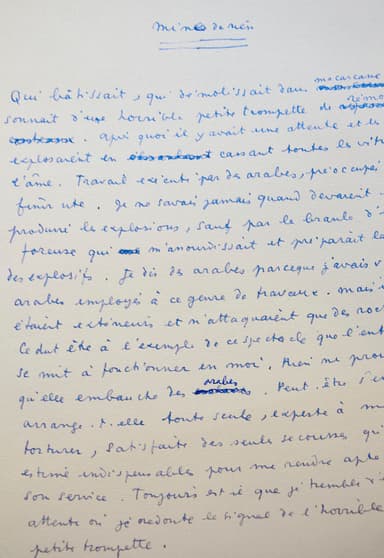 Mine de rien
Qui bâtissait, qui démolissait dans ma carcasse
sonnait d'une horrible petite trompette de rémo
Après quoi il y avait une attente et le
explosaient en cassant toutes les vitr
l'âme. Travail exécuté par des arabes, préoccupés
finir vite. Je ne savais jamais quand devaient
produire les explosions, sauf par le branle d'
foreuse qui m'anourdissait et préparait la
des explosifs. Je dis des arabes parceque j'avais v
arabes employés à ce genre de travaux. mais i
étaient extérieurs et n'attaquaient que des roc
Ce dut être à l'exemple de ce spectacle que l'ent
se mit à fonctionner en moi. Rien ne prou
qu'elle embauche des arabes. Peut-être s'en
arrange-t-elle toute seule, experte à m
torturer, satisfaite des seules secousses qu
estime indispensables pour me rendre apte
son service. Toujours est-il que je tremble
attente où je redoute le signal de l'horrible
petite trompette.